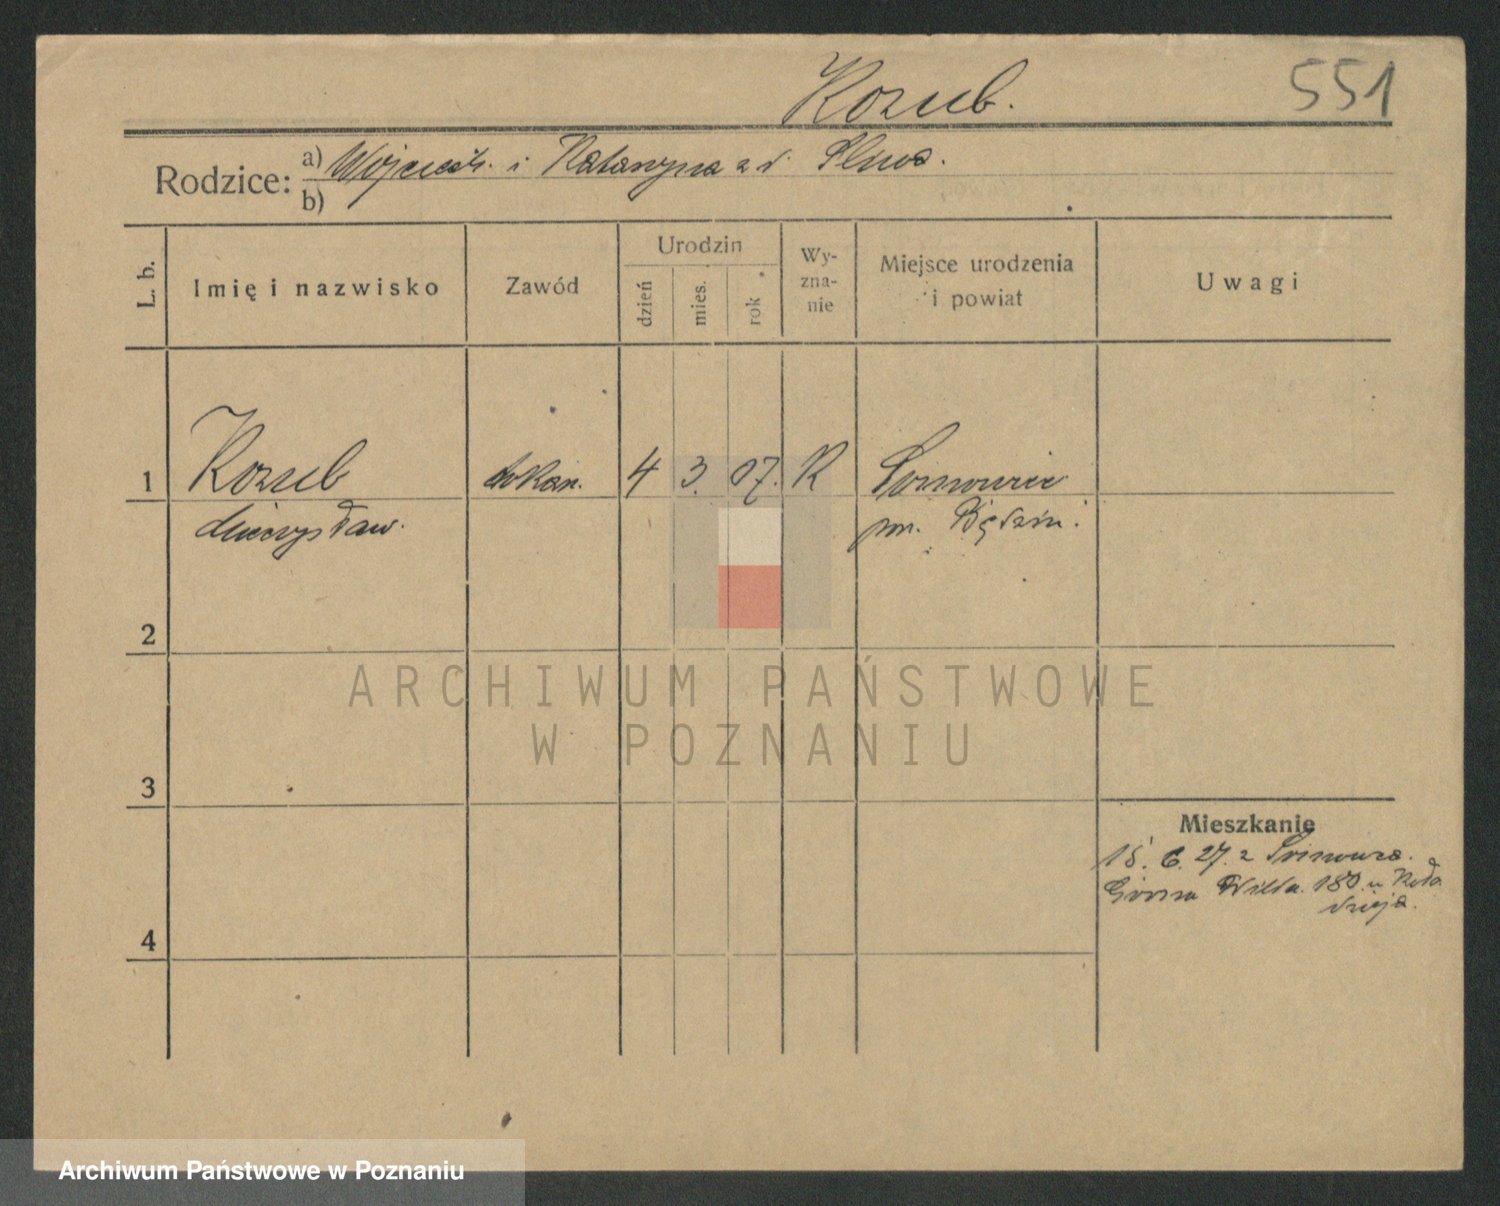 Kozub.
551
Rodzice:
a) Wojciech. i Katarzyna z d.
b)
L. b.
Imię i nazwisko
Zawód
Urodzin
dzień
mies.
rok
Wy-
zna-
nie
Miejsce urodzenia
i powiat
Uwagi
1
Kozub
Mieczysław.
4 3. 07. R
Sosnowiec
pow. Będzin.
2
ARCHIWUM PAŃSTWOWE
W POZNANIU
3
Mieszkanie
15. 6. 27. z Sosnowca.
Górna Wilda. 180. u Koło
dzieja.
4
Archiwum Państwowe w Poznaniu